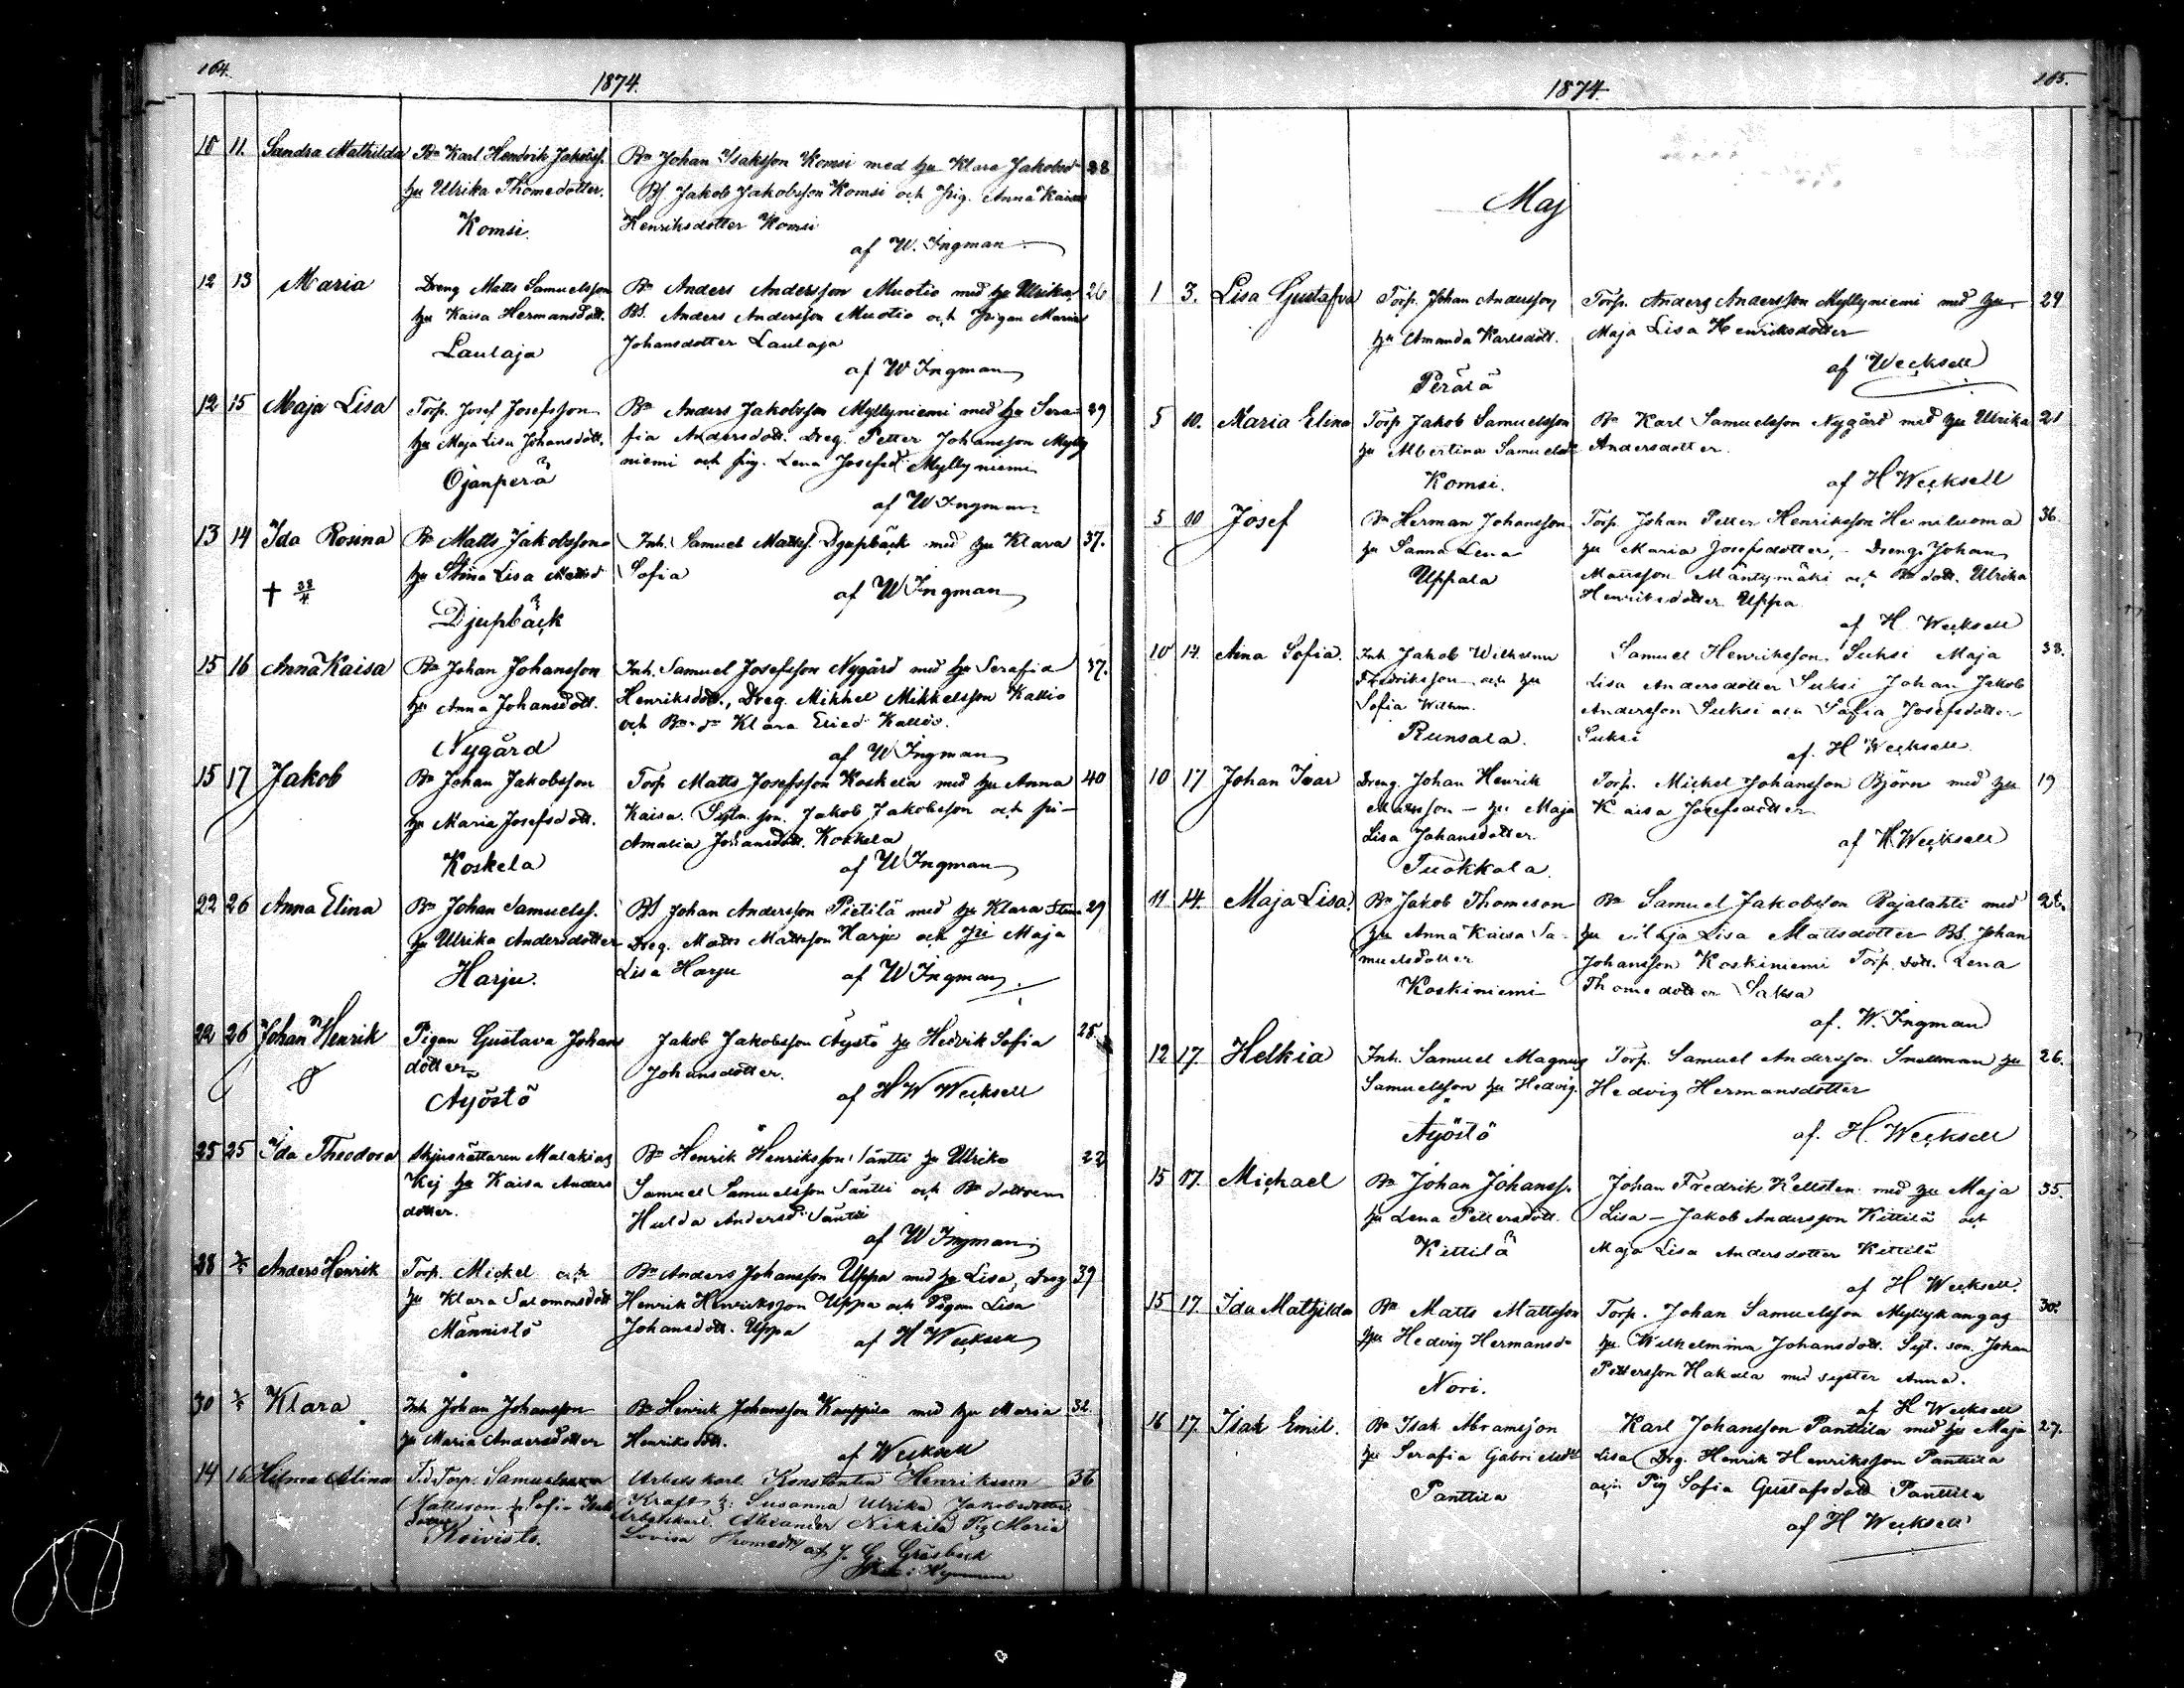 164.
1874.
10 11. Sandra Mathilda Bn Karl Hendrik Jakobss. Bn Johan Isaksson Komsi med hu Klara Jakobsd 28
hu Ulrika Thomedotter. BS. Jakob Jakobsson Komsi och Pig. Anna Kaisa
Komsi. Henriksdotter Komsi
af W. Ingman
12 13 Maria Dreng Matts Samuelsson Bn Anders Andersson Muotio med hu Ulrika 26
hu Kaisa Hermansdott. BS. Anders Andersson Muotio och Pigan Maria
Laulaja Johansdotter Laulaja
af W Ingman
12 15 Maja Lisa Torp. Josef Josefsson Bn Anders Jakobsson Myllyniemi med hu Sera 29
hu Maja Lisa Johansdott. fia Andersdott. Dreg. Petter Johansson Mylly
Ojanperä niemi och pig. Lena Josefsd. Myllyniemi
af W Ingman
13 14 Ida Rosina Bn Matts Jakobsson Inh. Samuel Mattss. Djupbäck med hu Klara 37.
† 28/4 hu Stina Lisa Mattsd Sofia
af W Ingman
Djupbäck
15 16 Anna Kaisa Bn Johan Johansson Inh. Samuel Josefsson Nygård med hu Serafia 37.
hu Anna Johansdott. Henriksdott., Dreg. Mikkel Mikkelsson Kallio
och Bn. dr Klara Elied. Kallio.
Nygård af W Ingman
15 17 Jakob Bn Johan Jakobsson Torp Matts Josefsson Koskela med hu Anna 40
hu Maria Josefsdott. Kaisa. son. Jakob Jakobsson och pi-
Amalia Johansdott. Koskela
Koskela af W Ingman
22 26 Anna Elina Bn Johan Samuelss. BS Johan Andersson Pietilä med hu Klara Stina 29
hu Ulrika Andersdotter Dreg. Matts Mattsson Harju och Pi Maja
Harju. Lisa Harju af W Ingman
22 26 Johan Henrik Pigan Gustava Johans Jakob Jakobsson Äyöstö hu Hedvik Sofia 25.
dotter Johansdotter.
Äyöstö af H W Wecksell
25 25 Ida Theodora Skjusrättaren Malakias Bn Henrik Henriksson Säntti hu Ulrika 22
Kej hu Kaisa Anders Samuel Samuelsson Säntti och Bn dottern
dotter. Hulda Andersd. Säntti
af W Ingman
28 Anders Henrik Torp. Mickel och Bn Anders Johansson Uppa med hu Lisa, Dreg 39
hu Klara Salomonsdott Henrik Henriksson Uppa och Pigan Lisa
Männistö Johansdott. Uppa af H Wecksell
30 Klara Inh Johan Johansson Bn Henrik Johansson Kauppila med hu Maria 32.
hu Maria Andersdotter Henriksdott. af Wecksell
14 16 Hilma Alina Torp. Samuelsson Arbetskarl Konstantin Henriksson 36
Mattsson h. Sofia Isak Kraft h: Susanna Ulrika Jakobsdotter
dotter Arbetskarl. Alexander Nikkilä Pig Maria
Koivisto. Lovisa Thomedotr af J. G. Gråsbeck
165.
1874.
Maj
1 3. Lisa Gustafva Torp. Johan Andersson Torp. Anders Andersson Myllyniemi med hu 24
hu Amanda Karlsdott. Maja Lisa Henriksdotter
Perälä af Wecksell
5 10. Maria Elina Torp Jakob Samuelsson Bn Karl Samuelsson Nygård med hu Ulrika 21
hu Albertina Samuelsdr Andersdotter.
Komsi. af H Wecksell
5 10 Josef Bn Herman Johansson Torp. Johan Petter Henriksson Heiniluoma 36.
hu Sanna Lena hu Maria Josefsdotter, - Dreng Johan
Uppala Mattsson Mäntymäki och Bn dott. Ulrika
Henriksdotter Uppa
af H. Wecksell
10 14. Aina Sofia. Inh. Jakob Wilhelm Samuel Henriksson Suksi Maja 38.
Fredriksson och hu Lisa Andersdotter Suksi Johan Jakob
Sofia Wilhm. Andersson Suksi och Sofia Josefsdotter
Runsala. Suksi af. H Wecksell
10 17 Johan Ivar Dreng. Johan Henrik Torp. Mickel Johansson Björn med hu 19
Mattsson - hu Maja Kaisa Josefsdotter
Lisa Johansdotter af H Wecksell
Tuokkola.
11 14. Maja Lisa. Bn Jakob Thomeson Bn Samuel Jakobsson Rajalahti med 28.
hu Anna Kaisa Sa- hu Maja Lisa Mattsdotter BS. Johan
muelsdotter Johansson Koskiniemi Torp. dott. Lena
Koskiniemi Thomedotter Saksa
af. W. Ingman
12 17. Helkia Inh. Samuel Magnus Torp. Samuel Andersson Snellman hu 26.
Samuelsson hu Hedvig. Hedvig Hermansdotter
Äyöstö af. H. Wecksell
15 17. Michael Bn Johan Johanss. Johan Fredrik Kellsten med hu Maja 35.
hu Lena Pettersdott. Lisa - Jakob Andersson Kittilä och
Kittilä Maja Lisa Andersdotter Kittilä
af H Wecksell.
15 17. Ida Mathilda Bn Matts Mattsson Torp. Johan Samuelsson Myllykangas 30.
hu Hedvig Hermansd. hu Wilhelmina Johansdott. Syt. son. Johan
Nori. Pettersson Hakala med syster Anna.
af H Wecksell
16 17. Isak Emil. Bn Isak Abramsson Karl Johansson Panttila med hu Maja 27.
hu Serafia Gabrielsdr Lisa Drg. Henrik Henriksson Panttila
Panttila och Pig Sofia Gustafsdott Panttila
af H Wecksell